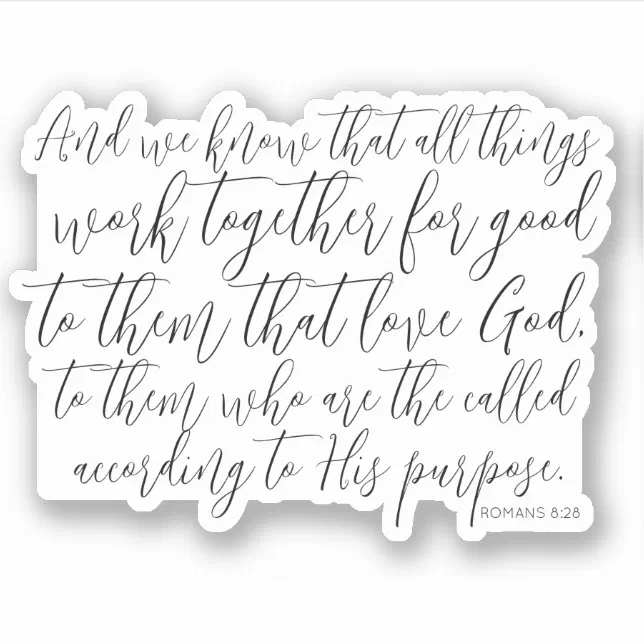 And we know that all things
work together for good
to them that love God,
to them who are the called
according to His purpose.
ROMANS 8:28